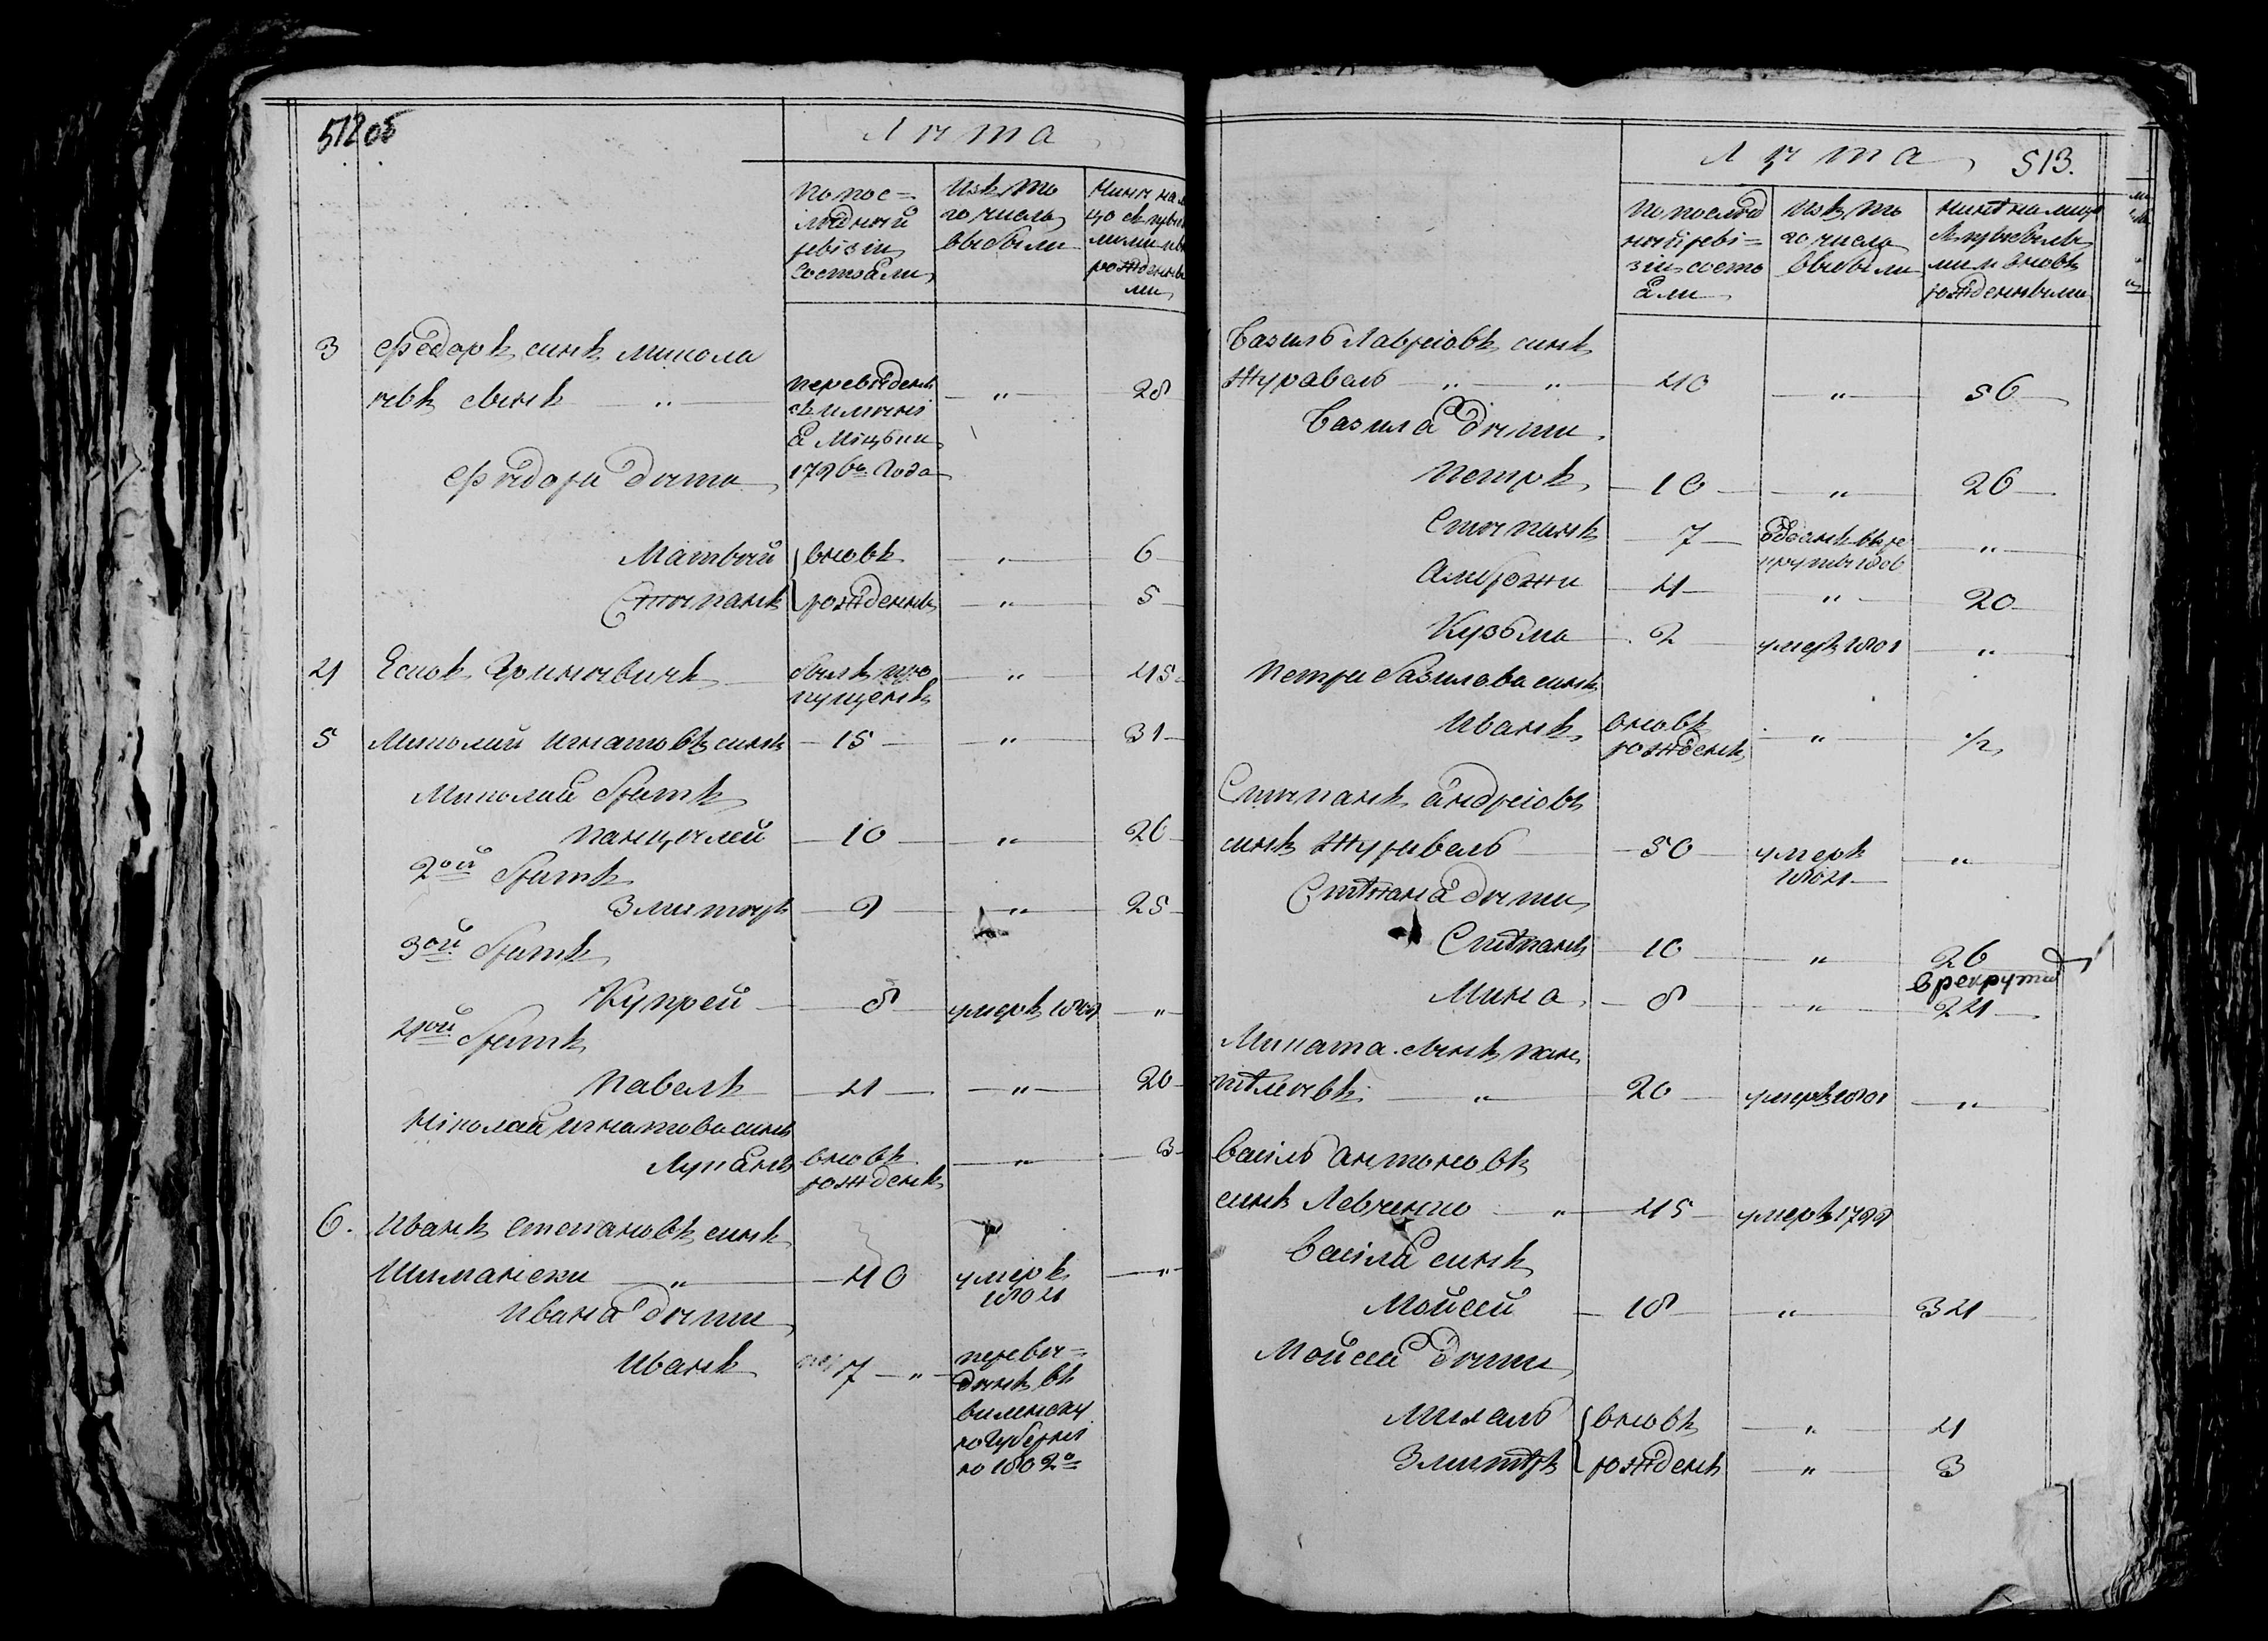 512 об
Лета
По пос=
ледней
ревизіи
состояли
Изъ то
го числа
выбыли
Ныне на ли
цо съ прибы
лыми и вновь
рожденны
ми
3 Федоръ сынъ Микола
евъ сынъ " переведенъ " 28
съ имені
я
1796го Года
Федора дети
Матвей вновь " 6
Степанъ рожденны " 5
4 Есипъ Гриневичъ былъ про " 45
пущенъ
5 Миколай Игнатовъ сынъ 15 " 31
Миколая братъ
Панцелей 10 " 26
2ой братъ
Змитеръ 9 " 25
3ой братъ
Купрей 8 умеръ 1809 "
4ой братъ
Павелъ 4 " 20
Ніколая Игнатова сынъ
Лукянъ вновь " 3
рожденъ
6. Иванъ Степановъ сынъ
Шимански " 40 умеръ "
1804
Ивана дети
Иванъ 7 " переве=
денъ въ
виленску
ю Губерні
ю 1802го
Лета 513.
По послед
ней реви=
зіи состо
яли
Изъ то
го числа
выбыли
Ныне на лицо
съ прибылы
ми и вновь
рожденными
Базиль Лавреіовъ сынъ
Журавель " " 40 " 56
Базиля дети
Петръ 10 " 26
Степанъ 7 отданъ въ ре "
круты
Амброжи 4 " 20
Кузьма 2 умеръ 1801 "
Петра Базилова сынъ
Иванъ вновь " 1/2
рожденъ
Степанъ Андреіовъ
сынъ Журавель 50 умеръ "
1804
Степана дети
Степанъ 10 " 26
в рекруты
Мина 8 " 24
Миката сынъ Пан
телеевъ " 20 умеръ 1801 "
Васіль Антоновъ
сынъ Левченко " 45 умеръ 1799
Васіля сынъ
Мойсей 18 " 34
Мойсея дети
Михаль вновь " 4
Змитеръ рожденъ " 3